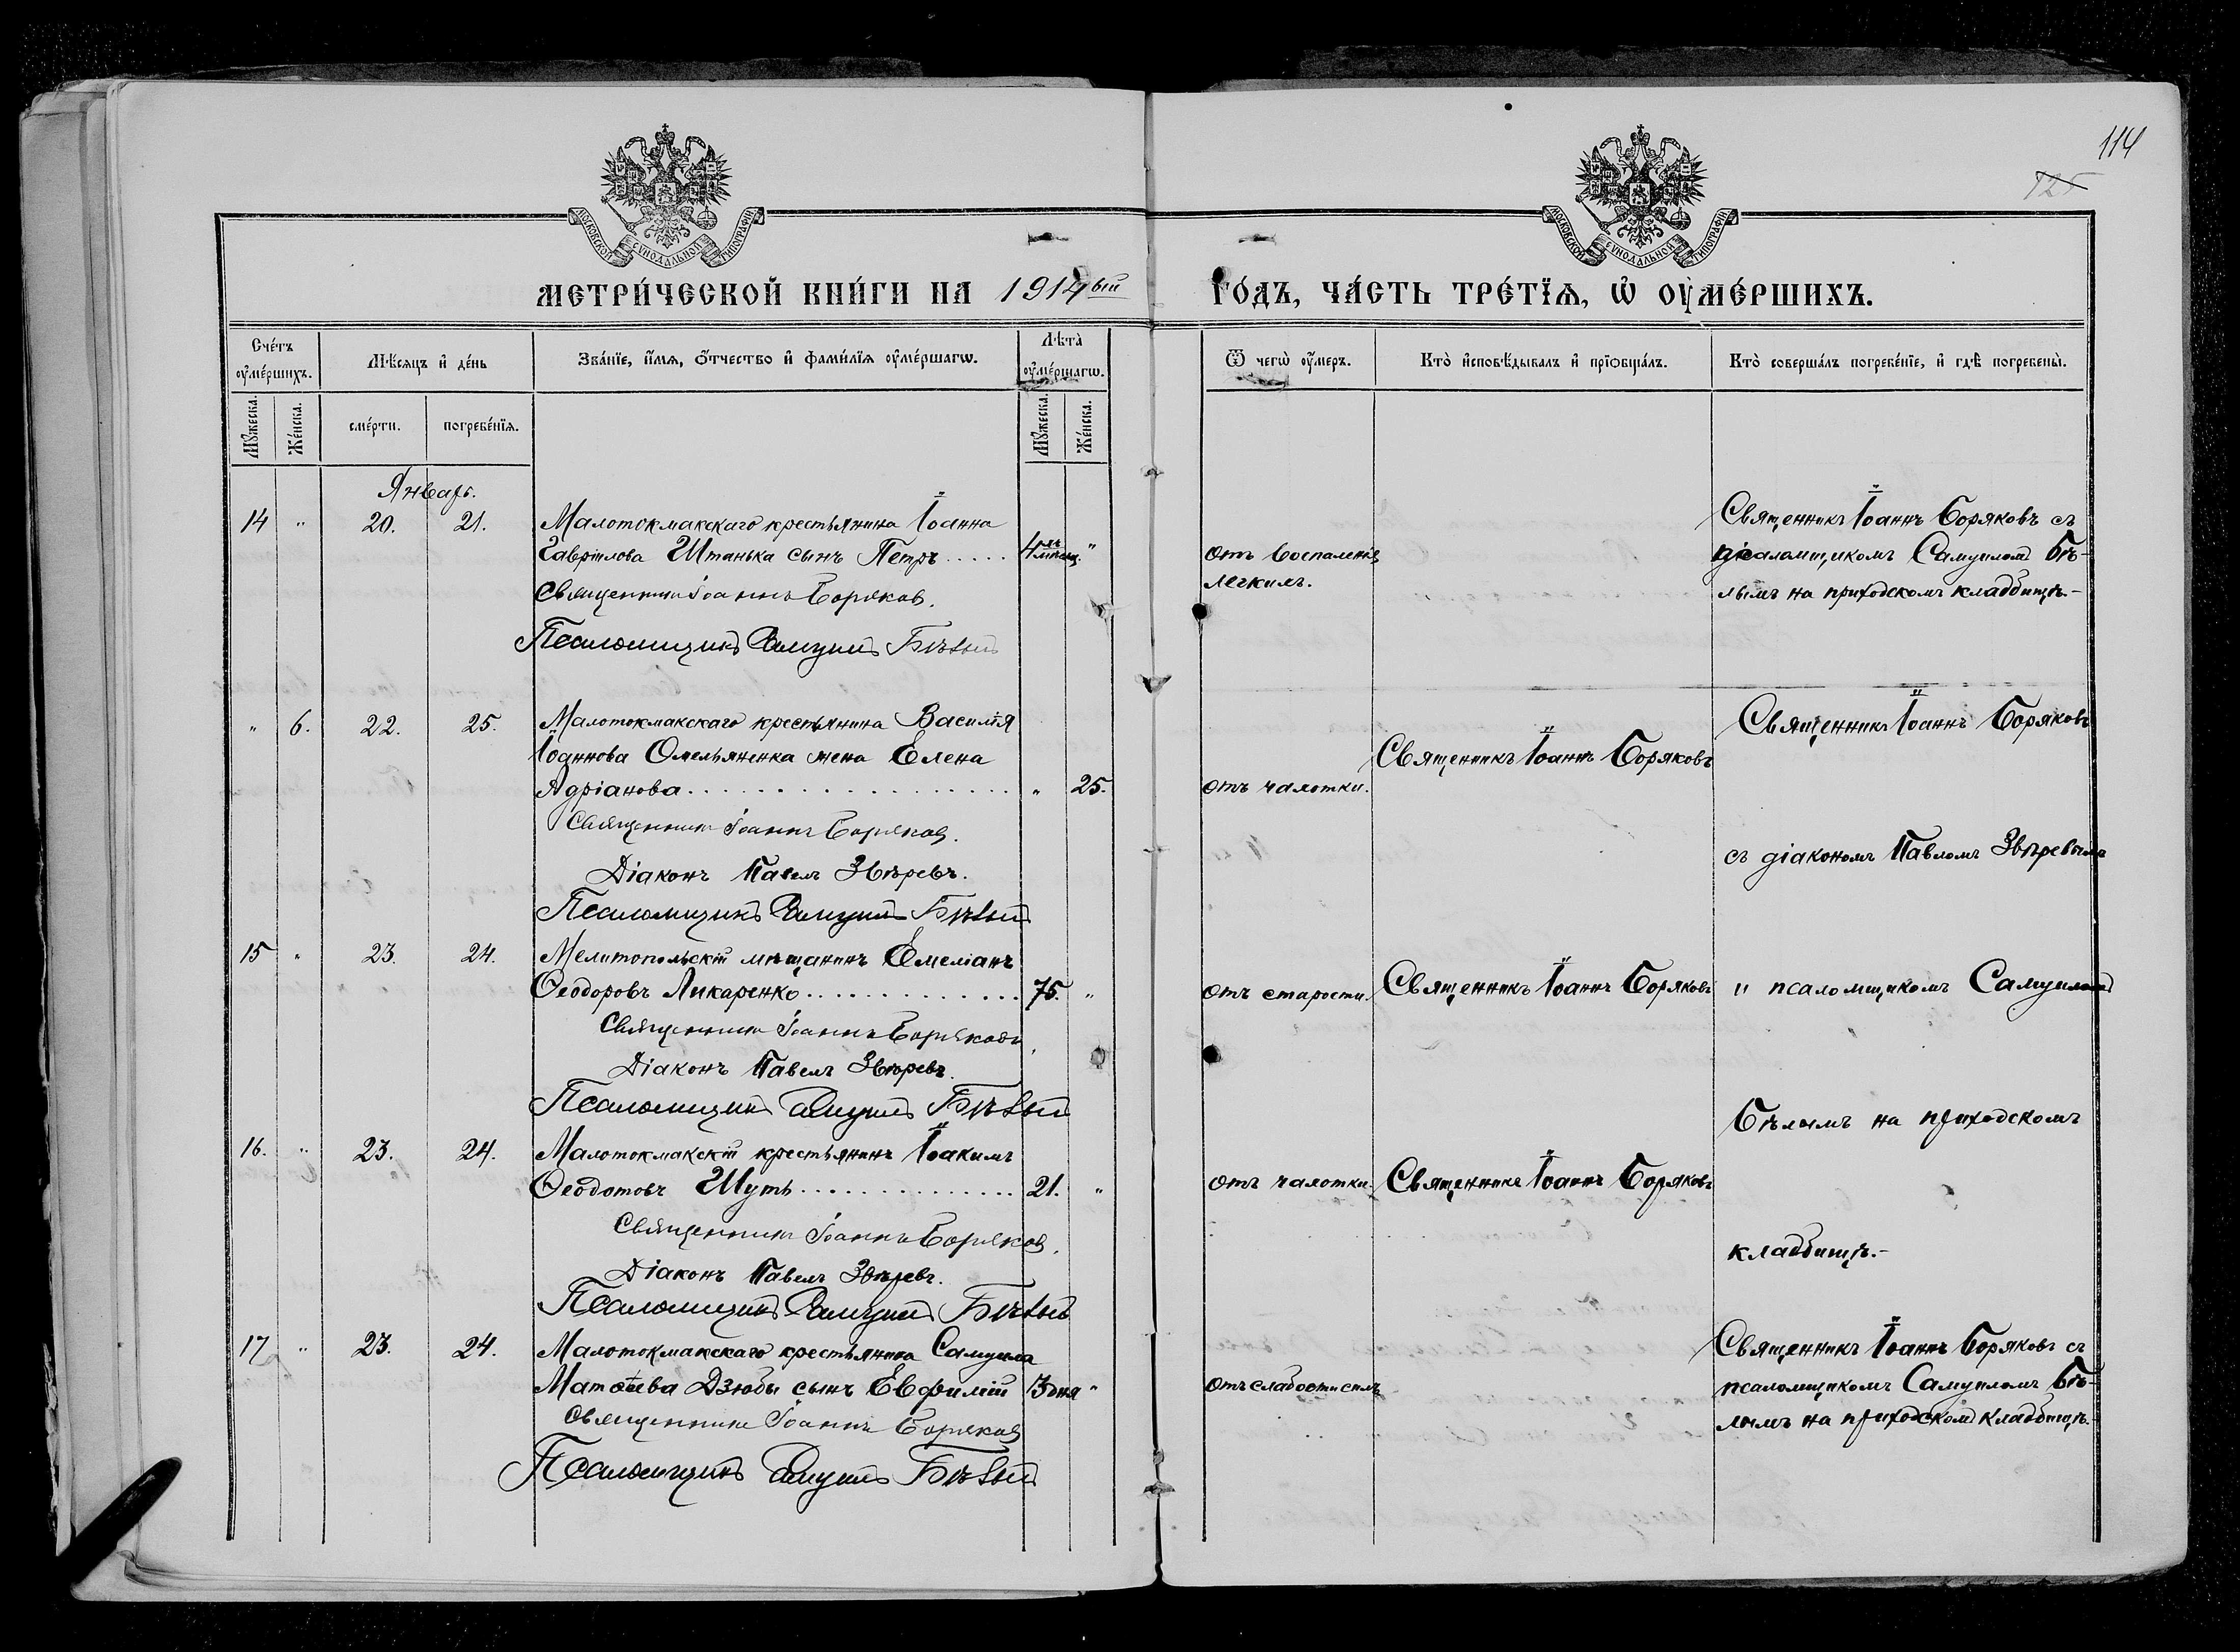 114
125
МОСКОВСКОЙ СѴНОДАЛЬНОЙ ТИПОГРАФІИ
МОСКОВСКОЙ СѴНОДАЛЬНОЙ ТИПОГРАФІИ
МЕТРИ́ЧЕСКОЙ КНИ́ГИ НА 1914ый ГО́ДЪ, ЧА́СТЬ ТРЕ́ТЇѦ, Ѡ҆ ОУ҆МЕ́РШИХЪ.
Сче́тъ оу҆ме́ршихъ.
Мѣ́сяцъ и҆ де́нь
Зва́нїе, и҆́мѧ, ѻ҆́тчество и҆ фами́лїѧ оу҆ме́ршагѡ.
Лѣ́та̀ оу҆ме́ршагѡ.
Ѿ чегѡ̀ оу҆́меръ.
Кто̀ и҆сповѣ́дывалъ и҆ прїѻбща́лъ.
Кто̀ соверша́лъ погребе́нїе, и҆ гдѣ̀ погребены̀.
Мꙋ́жеска.
Же́нска.
сме́рти.
погребе́нїѧ.
Мꙋ́жеска.
Же́нска.
Январь.
14 " 20. 21. Малотокмакскаго крестьянина Іоанна
Гавріилова Штанька сынъ Петръ ..... 4 мѣсяц. "
Священникъ Іоаннъ Боряковъ.
Псаломщикъ Самуилъ Бѣлый
отъ воспаленія
легкихъ.
Священникъ Іоаннъ Боряковъ съ
псаломщикомъ Самуиломъ Бѣ-
лымъ на приходскомъ кладбищѣ.-
" 6. 22. 25. Малотокмакскаго крестьянина Василія
Іоаннова Омельяненка жена Елена
Адріанова .................. " 25.
Священникъ Іоаннъ Боряковъ.
Діаконъ Павелъ Звѣревъ.
Псаломщикъ Самуилъ Бѣлый
отъ чахотки.
Священникъ Іоаннъ Боряковъ
Священникъ Іоаннъ Боряковъ
съ діакономъ Павломъ Звѣревымъ
15 " 23. 24. Мелитопольскій мѣщанинъ Емеліанъ
Ѳеодоровъ Ликаренко ............. 75. "
Священникъ Іоаннъ Боряковъ.
Діаконъ Павелъ Звѣревъ.
Псаломщикъ Самуилъ Бѣлый
отъ старости.
Священникъ Іоаннъ Боряковъ
и псаломщикомъ Самуиломъ
Бѣлымъ на приходскомъ
16. " 23. 24. Малотокмакскій крестьянинъ Іоакимъ
Ѳеодотовъ Шуть .............. 21. "
Священникъ Іоаннъ Боряковъ.
Діаконъ Павелъ Звѣревъ.
Псаломщикъ Самуилъ Бѣлый
отъ чахотки.
Священникъ Іоаннъ Боряковъ
кладбищѣ.-
17 " 23. 24. Малотокмакскаго крестьянина Самуила
Матѳіева Дзюбы сынъ Евфимій 3 дня "
Священникъ Іоаннъ Боряковъ
Псаломщикъ Самуилъ Бѣлый
отъ слабости силъ
Священникъ Іоаннъ Боряковъ съ
псаломщикомъ Самуиломъ Бѣ-
лымъ на приходскомъ кладбищѣ.-